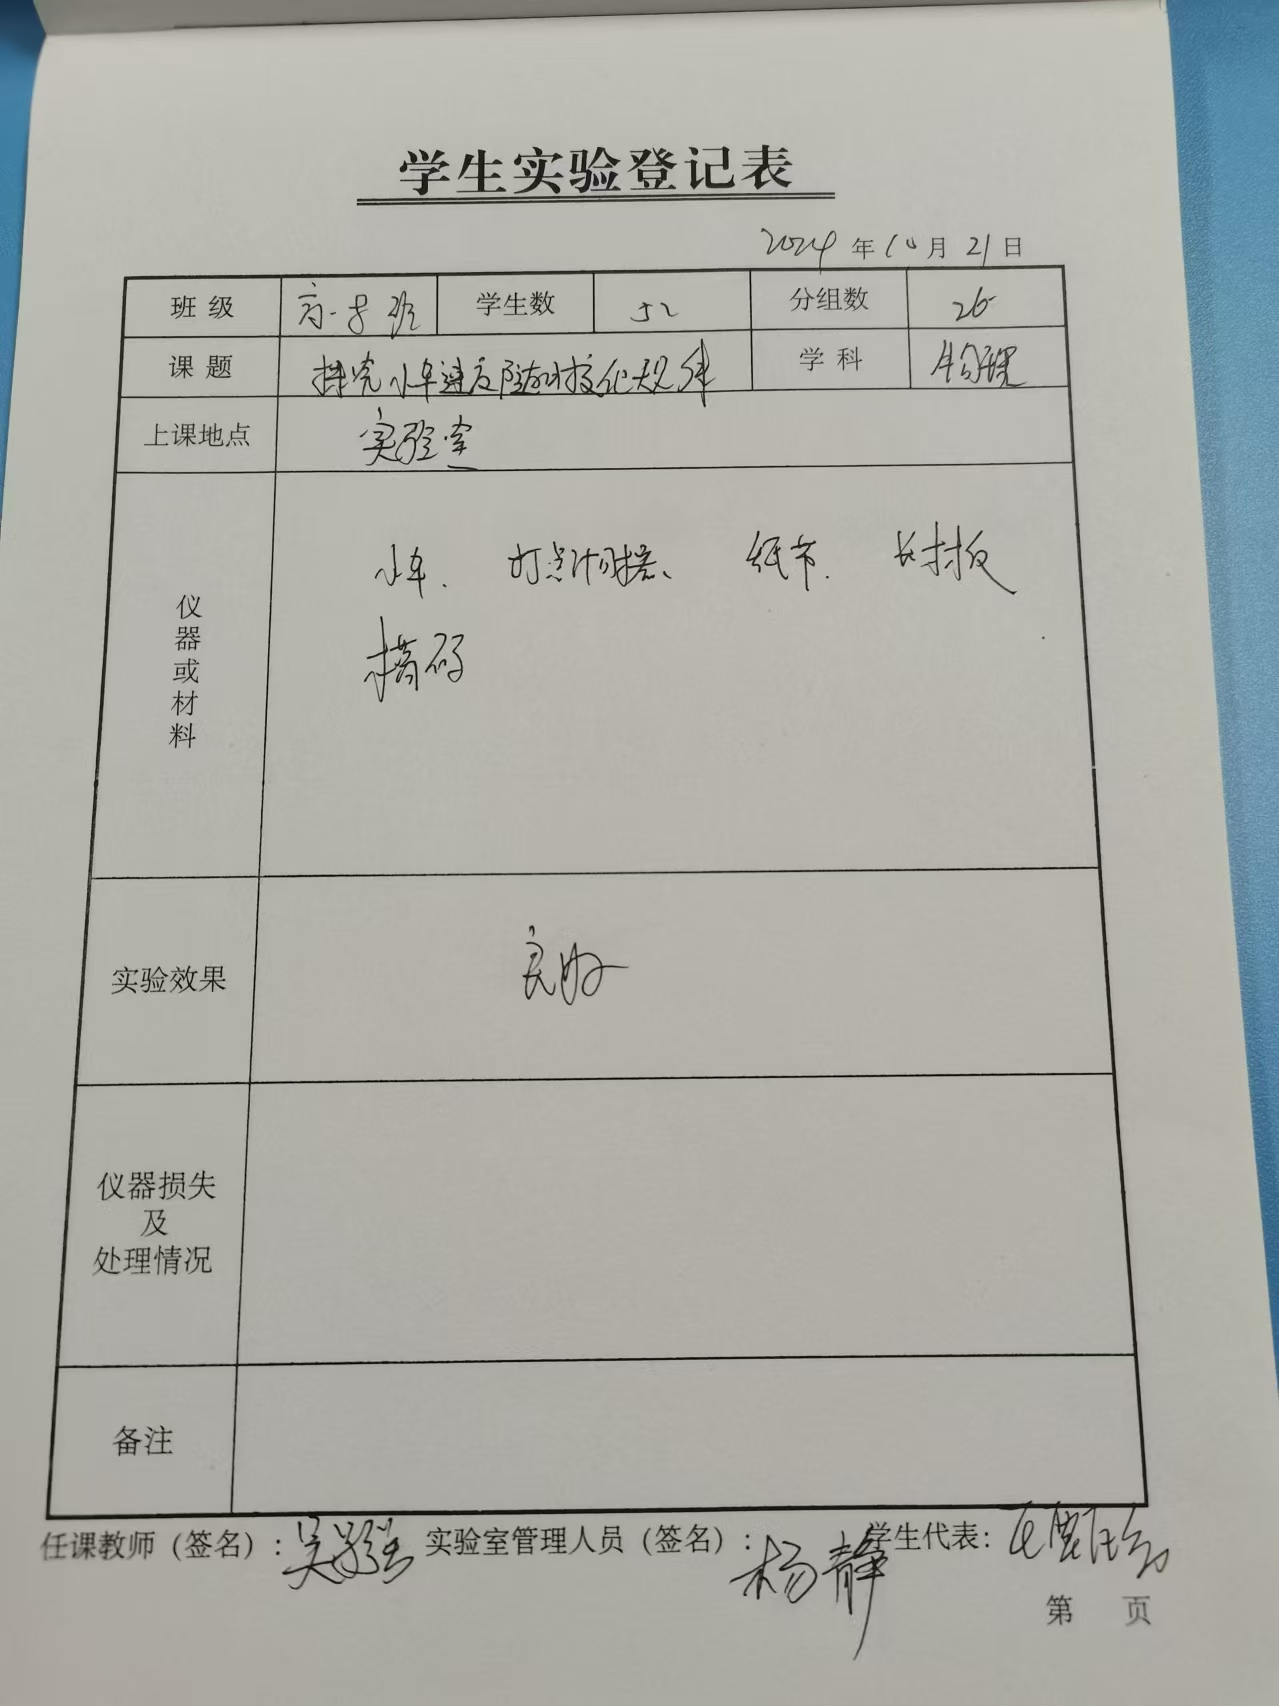 学生实验登记表
2024年10月21日
班级 高一8班 学生数 52 分组数 26
课题 探究小车速度随时间变化规律 学科 物理
上课地点 实验室
仪器或材料 小车、打点计时器、纸带、长木板
槽码
实验效果 良好
仪器损失
及
处理情况
备注
任课教师(签名): 实验室管理人员(签名):杨静 学生代表:
第 页